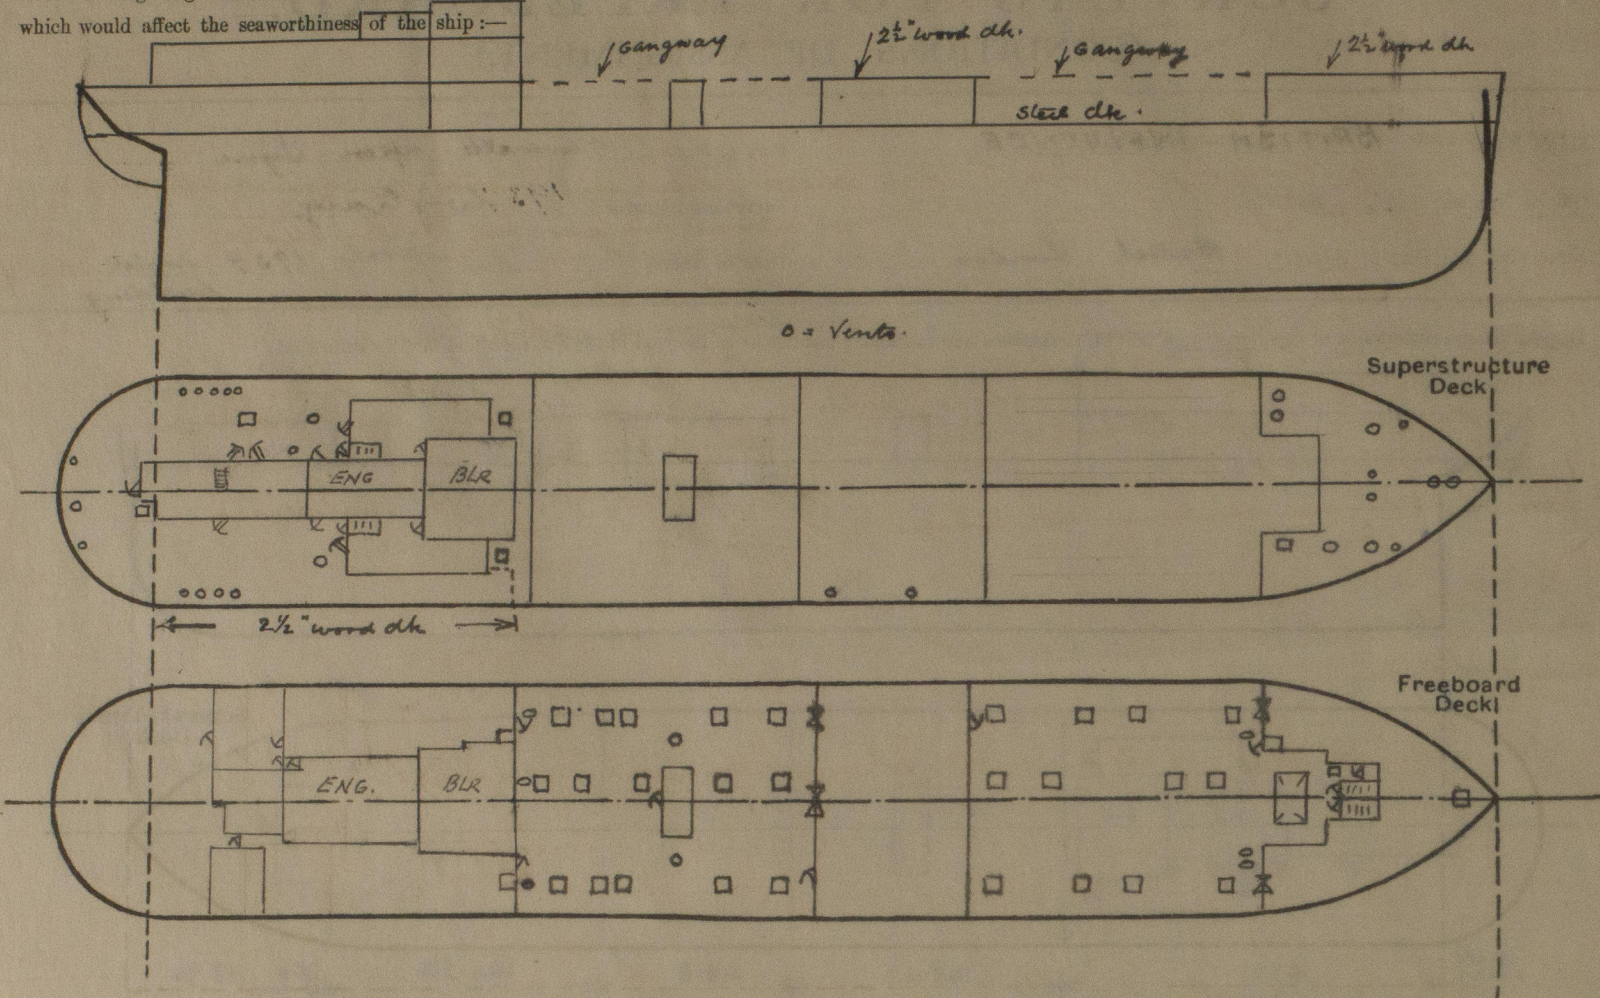 which would affect the seaworthiness of the ship :—
Gangway
2½" wood dk.
Gangway
2½" wood dk
Steel dk.
o = Vents.
Superstructure
Deck
ENG
BLR
2½" wood dk
Freeboard
Deck
ENG.
BLR